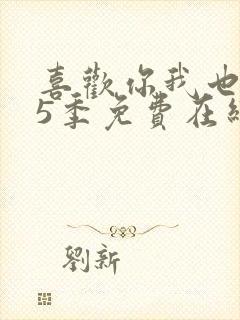 喜歡你我也
5季免費在線
劉新